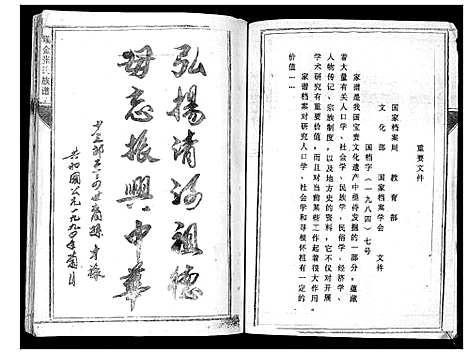 重要文件
国家档案局　教育部
文化部　国家档案学会　文件
国档字（一九八四）七号
家谱是我国宝贵文化遗产中亟待发掘的一部分，蕴藏
着大量有关人口学、社会学、民族学、民俗学、经济学、
人物传记、宗族制度，以及地方史的资料，它不仅对开展
学术研究有重要价值，而且对当前某些工作起着很大作用。
家谱档案对研究人口学、社会学和寻根怀祖有一定的
价值……
弘揚清河祖德
毋忘振興中華
共和國公元一九九〇年
張氏族谱